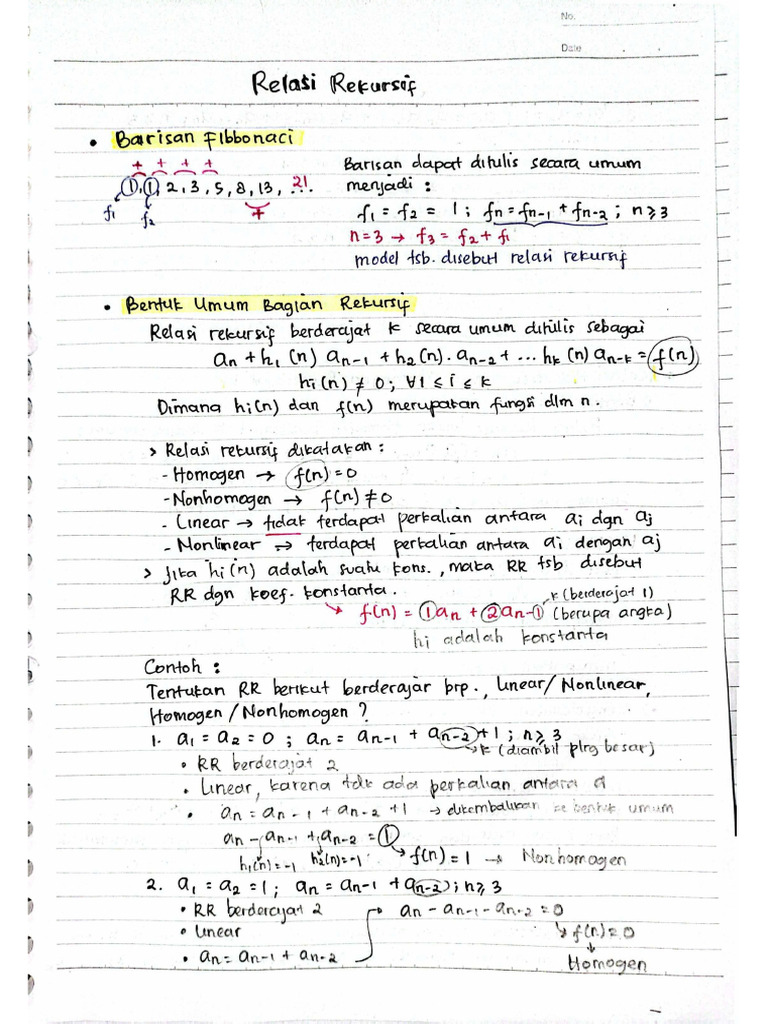 No.
Date
Relasi Rekursif
• Barisan Fibbonaci
+ + + +
1, 1, 2, 3, 5, 8, 13, ... 21
f1 f2 +
Barisan dapat ditulis secara umum
menjadi :
f1 = f2 = 1 ; fn = fn-1 + fn-2 ; n ≥ 3
n=3 → f3 = f2 + f1
model tsb. disebut relasi rekursif
• Bentuk Umum Bagian Rekursif
Relasi rekursif berderajat k secara umum ditulis sebagai
an + h1 (n) an-1 + h2(n). an-2 + ... hk (n) an-k = f(n)
hi(n) ≠ 0 ; ∀1 ≤ i ≤ k
Dimana hi(n) dan f(n) merupakan fungsi dlm n.
> Relasi rekursif dikatakan :
- Homogen → f(n) = 0
- Nonhomogen → f(n) ≠ 0
- Linear → tidak terdapat perkalian antara ai dgn aj
- Nonlinear → terdapat perkalian antara ai dengan aj
> Jika hi(n) adalah suatu kons., maka RR tsb disebut
RR dgn koef. konstanta.
k (berderajat 1)
↳ f(n) = 1an + 2an-1 (berupa angka)
hi adalah konstanta
Contoh :
Tentukan RR berikut berderajar brp., Linear/Nonlinear,
Homogen/Nonhomogen ?
1. a1 = a2 = 0 ; an = an-1 + an-2 + 1 ; n ≥ 3
→ k (diambil plng besar)
• RR berderajat 2
• Linear, karena tdk ada perkalian antara a
• an = an-1 + an-2 + 1 → dikembalikan ke bentuk umum
an - an-1 + an-2 = 1
h1(n) = -1 h2(n) = -1 → f(n) = 1 → Nonhomogen
2. a1 = a2 = 1 ; an = an-1 + an-2 ; n ≥ 3
• RR berderajat 2
• Linear
• an = an-1 + an-2
an - an-1 - an-2 = 0
↳ f(n) = 0
↓
Homogen